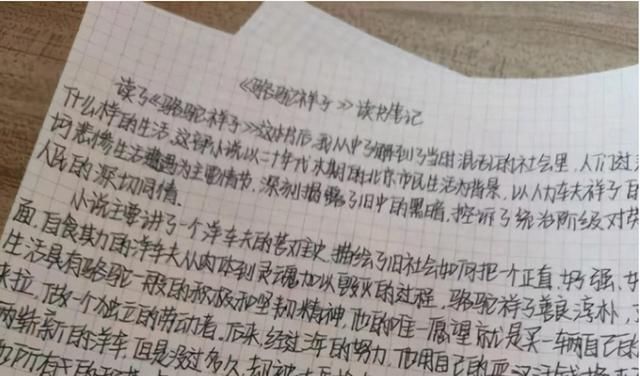 《骆驼祥子》读书笔记
读了《骆驼祥子》这本书后,我从中了解到了当时混乱的社会里,人们过
什么样的生活,这部小说以二十年代末期的北京市民生活为背景,以人力车夫祥子的
坷悲惨生活遭遇为主要情节,深刻揭露了旧中的黑暗,控诉了统治阶级对劳
人民的深切同情。
小说主要讲了一个洋车夫的苦难史,描绘了旧社会如何把一个正直、好强、
面,自食其力的洋车夫从肉体到灵魂加以毁灭的过程,骆驼祥子善良淳朴,
生活具有骆驼一般的积极和坚韧精神,他的唯一愿望就是买一辆自己的
来拉,做个独立的劳动者。后来,经过三年的努力,他用自己的血汗
崭新的洋车,但是没过多久,却被